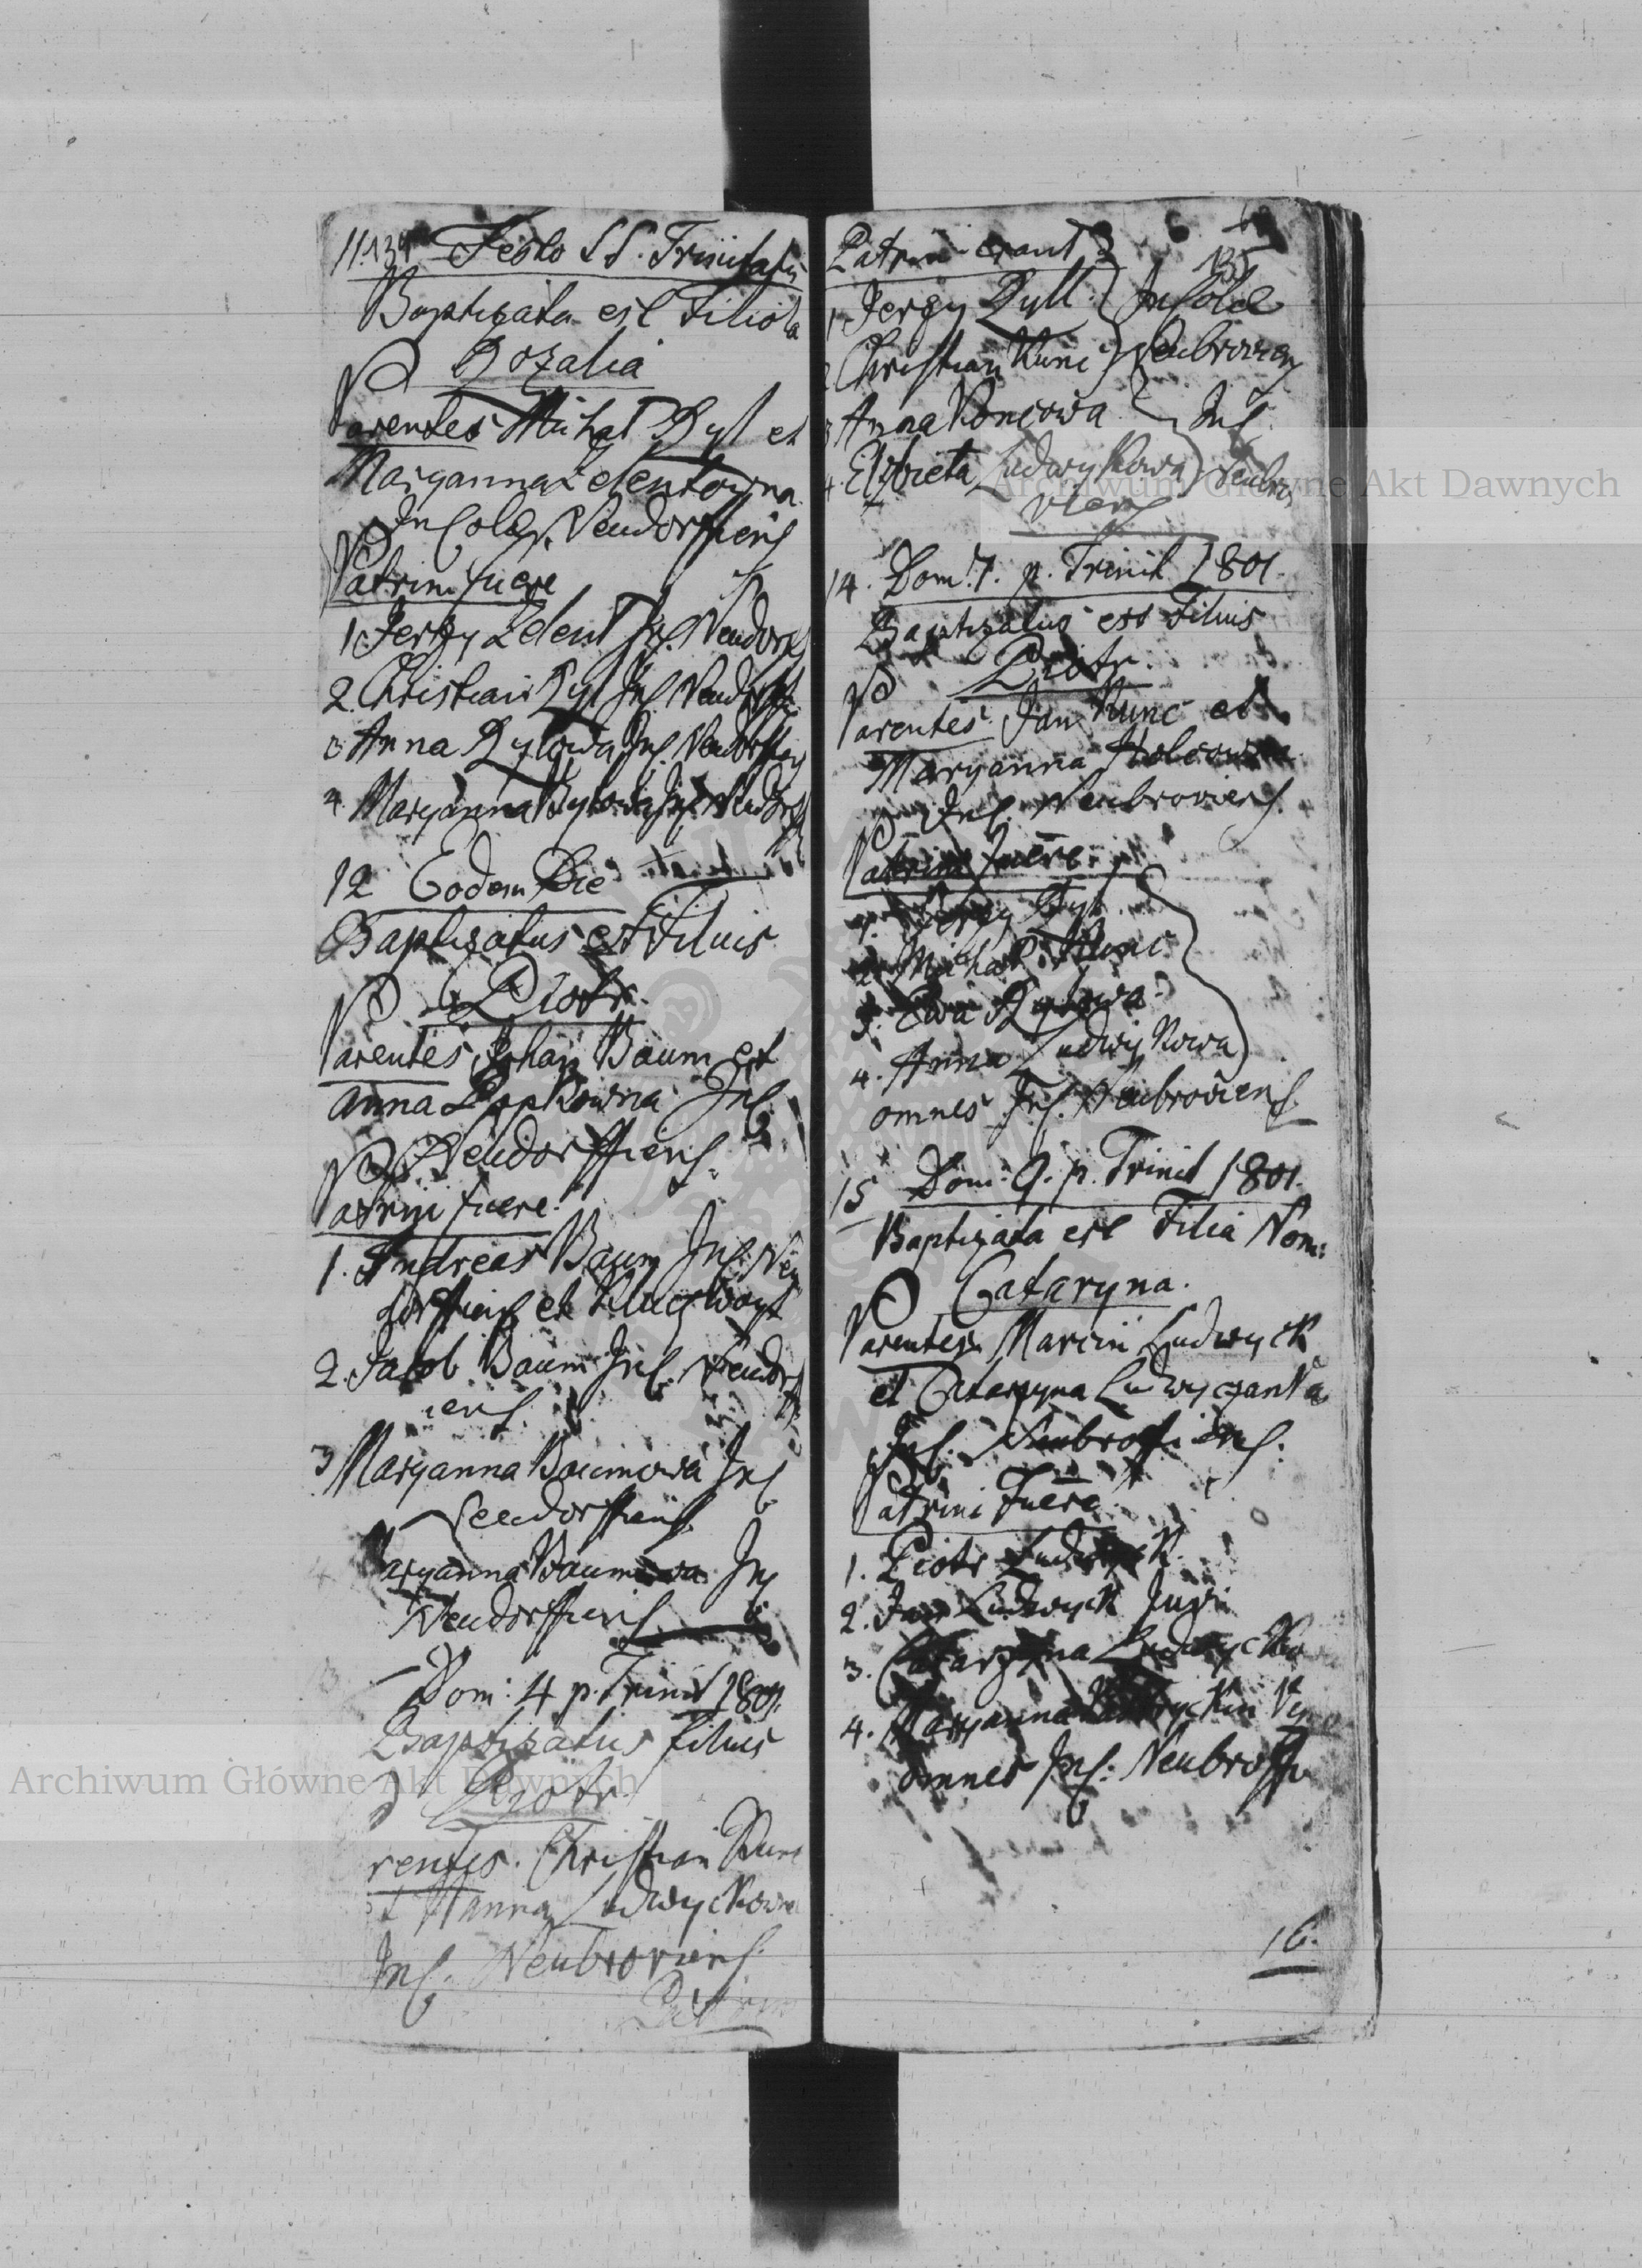 11. 134 Festo SS. Trinitatis
Baptizata est Filiola
Rozalia
Parentes Michał Ryl et
Maryanna Zelentowna
Incolae Neudorffiens
Patrini fuere
1. Jerzy Zelent Inc. Neudorf
2. Christian Ryl Inc Neudorff
3 Anna Rylowa Inc. Neudorffien
4. Maryanna Rylowa Inc. Neudorff
12 Eodem Die
Baptizatus est Filius
Piotr.
Parentes Johan Baum et
Anna Popkowna Inc.
Neudorffiens.
Patrini fuere.
1. Andreas Baum Inc. Neu
dorffiens et
2. Jacob Baum Inc. Neudorff
iens.
3 Maryanna Baumowa Inc
Neudorffiens.
4 Maryanna Baumowa Inc
Neudorffiens
13 Dom: 4 p. Trinit 1801.
Baptizatus filius
Piotr.
rentes. Christian Kunc
et Hanna Ludwyckowna
Inc. Neubroviens.
Patrini
Patrini erant 6
135
1 Jerzy Ryll. Incolae
2 Christian Kunc Neubrovien
3 Anna Koncowa Inc.
4. Elzbieta Ludwykowa Neubro
viens
14. Dom. 7. p. Trinit 1801.
Baptizatus est Filius
Piotr.
Parentes Jan Kunc et
Maryanna
Inc. Neubroviens.
Patrini fuere.
1. Jerzy Ryl.
2. Michał Kunc
3. Ewa Rylowa
4. Anna Ludwykowa
omnes Inc. Neubroviens
15 Dom: 9. p. Trinit 1801.
Baptizata est Filia Nom:
Cataryna.
Parentes Marcin Ludwyck
et Catarzyna Ludwyczanka
Inc. Neubroffiens.
Patrini Fuere
1. Piotr Ludwyck
2. Jan Ludwyck
3. Catarzyna Ludwycko
4. Maryanna
Omnes Inc: Neubroff
16.
Archiwum Główne Akt Dawnych
Archiwum Główne Akt Dawnych